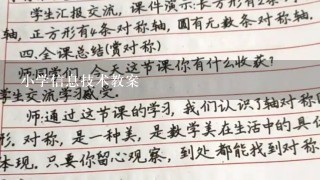 学生汇报交流，课件演示：长方形有2条
轴，正方形有4条对称轴，圆有无数条对称轴.
四.全课总结(赏对称)
师:同学们，今天这节课你有什么收获？
小学信息技术教案
学生交流学习
师:通过这节课的学习，我们认识了轴对称
形.对称，是一种美，是数学美在生活中的具
体现.只要你留心观察，到处都能找到对称